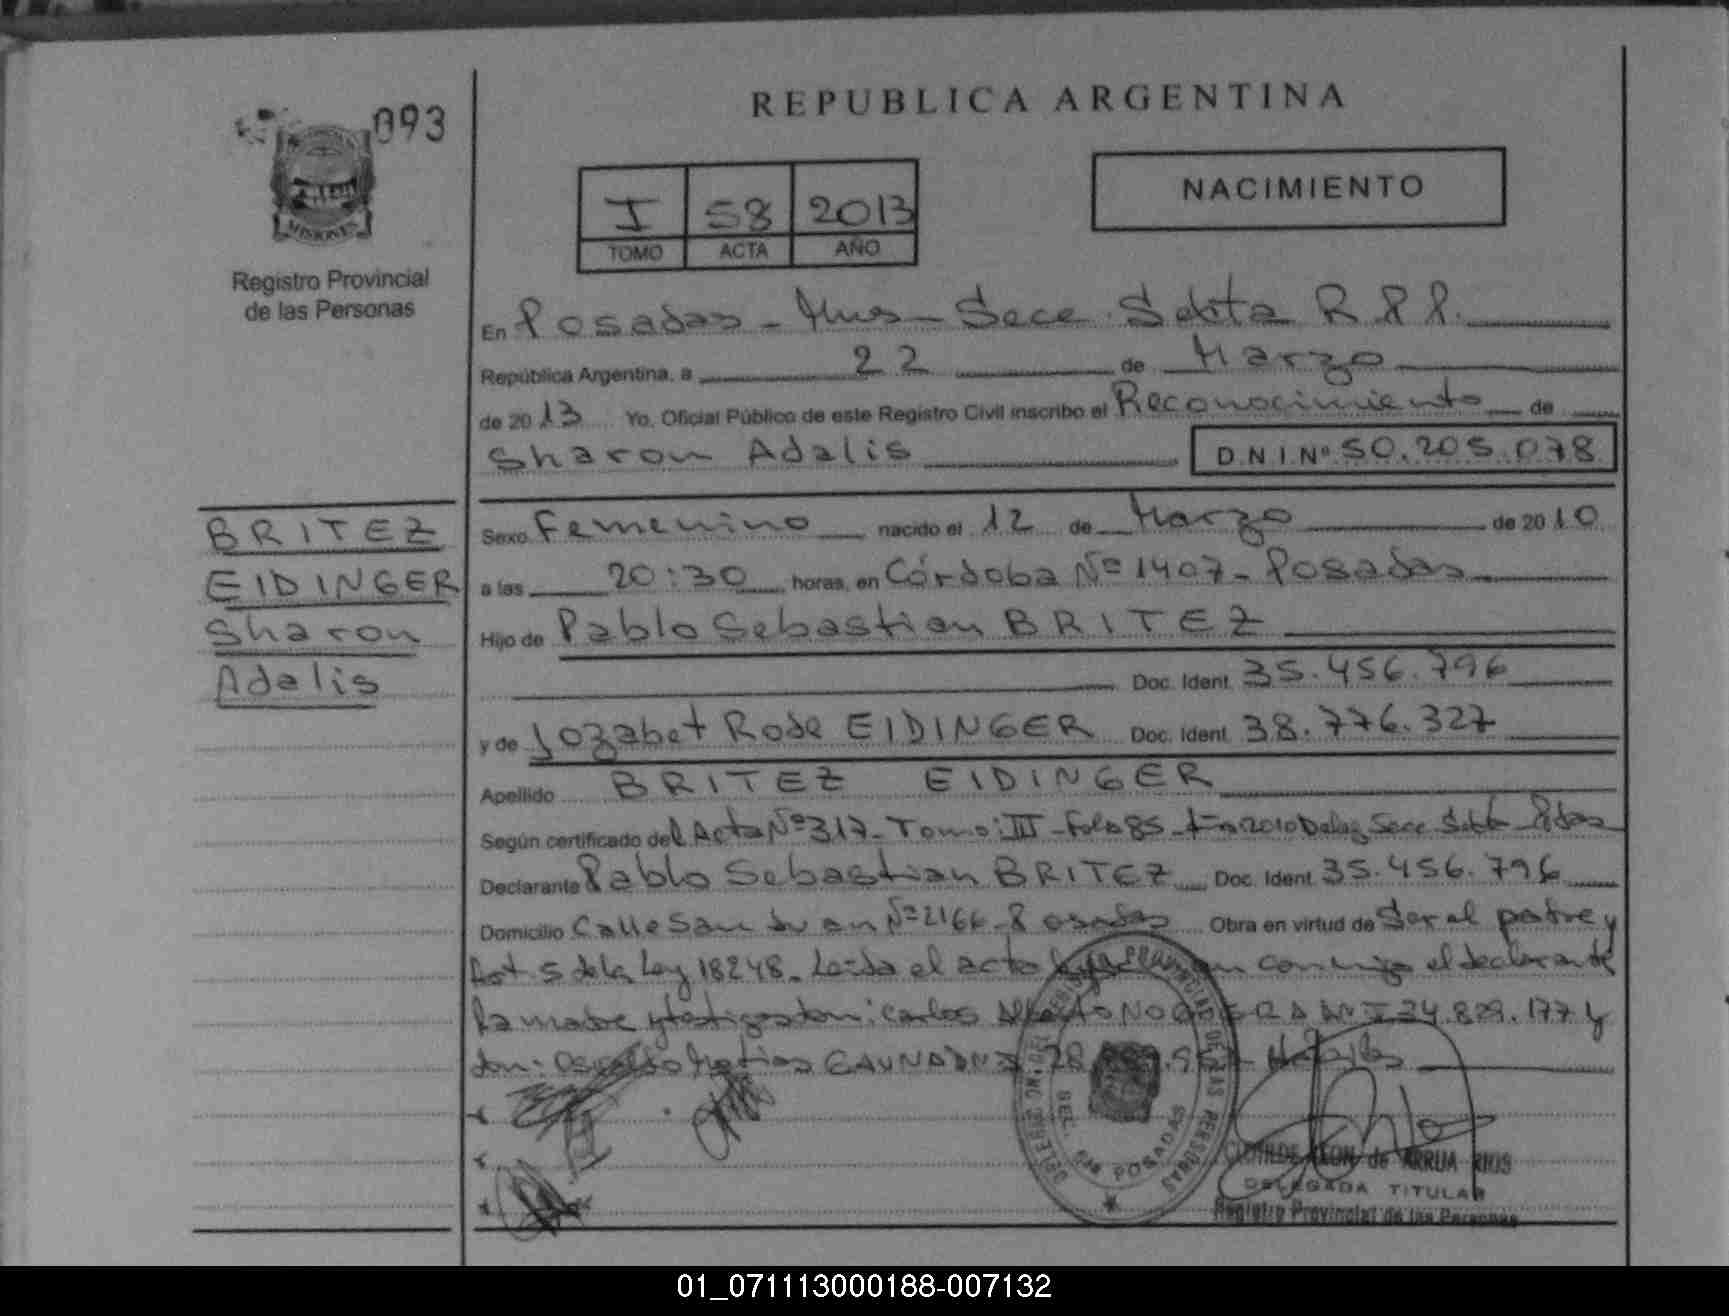 REPUBLICA ARGENTINA
093
MISIONES
Registro Provincial
de las Personas
I 58 2013
TOMO ACTA AÑO
NACIMIENTO
En Posadas - Mnes - Secc. Sexta R.P.P.
República Argentina, a 22 de Marzo
de 2013 Yo, Oficial Público de este Registro Civil inscribo el Reconocimiento de
Sharon Adalis D N I Nº 50.205.078
BRITEZ
EIDINGER
Sharon
Adalis
Sexo Femenino nacido el 12 de Marzo de 2010
a las 20:30 horas, en Córdoba Nº 1407 - Posadas
Hijo de Pablo Sebastian BRITEZ
Doc. Ident. 35.456.796
y de Jozabet Rode EIDINGER Doc. Ident. 38.776.327
Apellido BRITEZ EIDINGER
Según certificado del Acta Nº 317 - Tomo: III - Folo 85 - Año 2010 Deleg Secc. Sexta Pdas
Declarante Pablo Sebastian BRITEZ Doc. Ident. 35.456.796
Domicilio Calle San Juan Nº 2166 - Posadas Obra en virtud de Ser el padre y
Art. 5 de la Ley 18248. Leida el acta conmigo el declarante
la madre y testigos don: Carlos Alberto 24.829.177 y
don: Osvaldo Matias
REGISTRO PROVINCIAL DE LAS PERSONAS
SEC. 6ta POSADAS
CLOTILDE LEON de ARRUA RIOS
DELEGADA TITULAR
Registro Provincial de las Personas
01_071113000188-007132